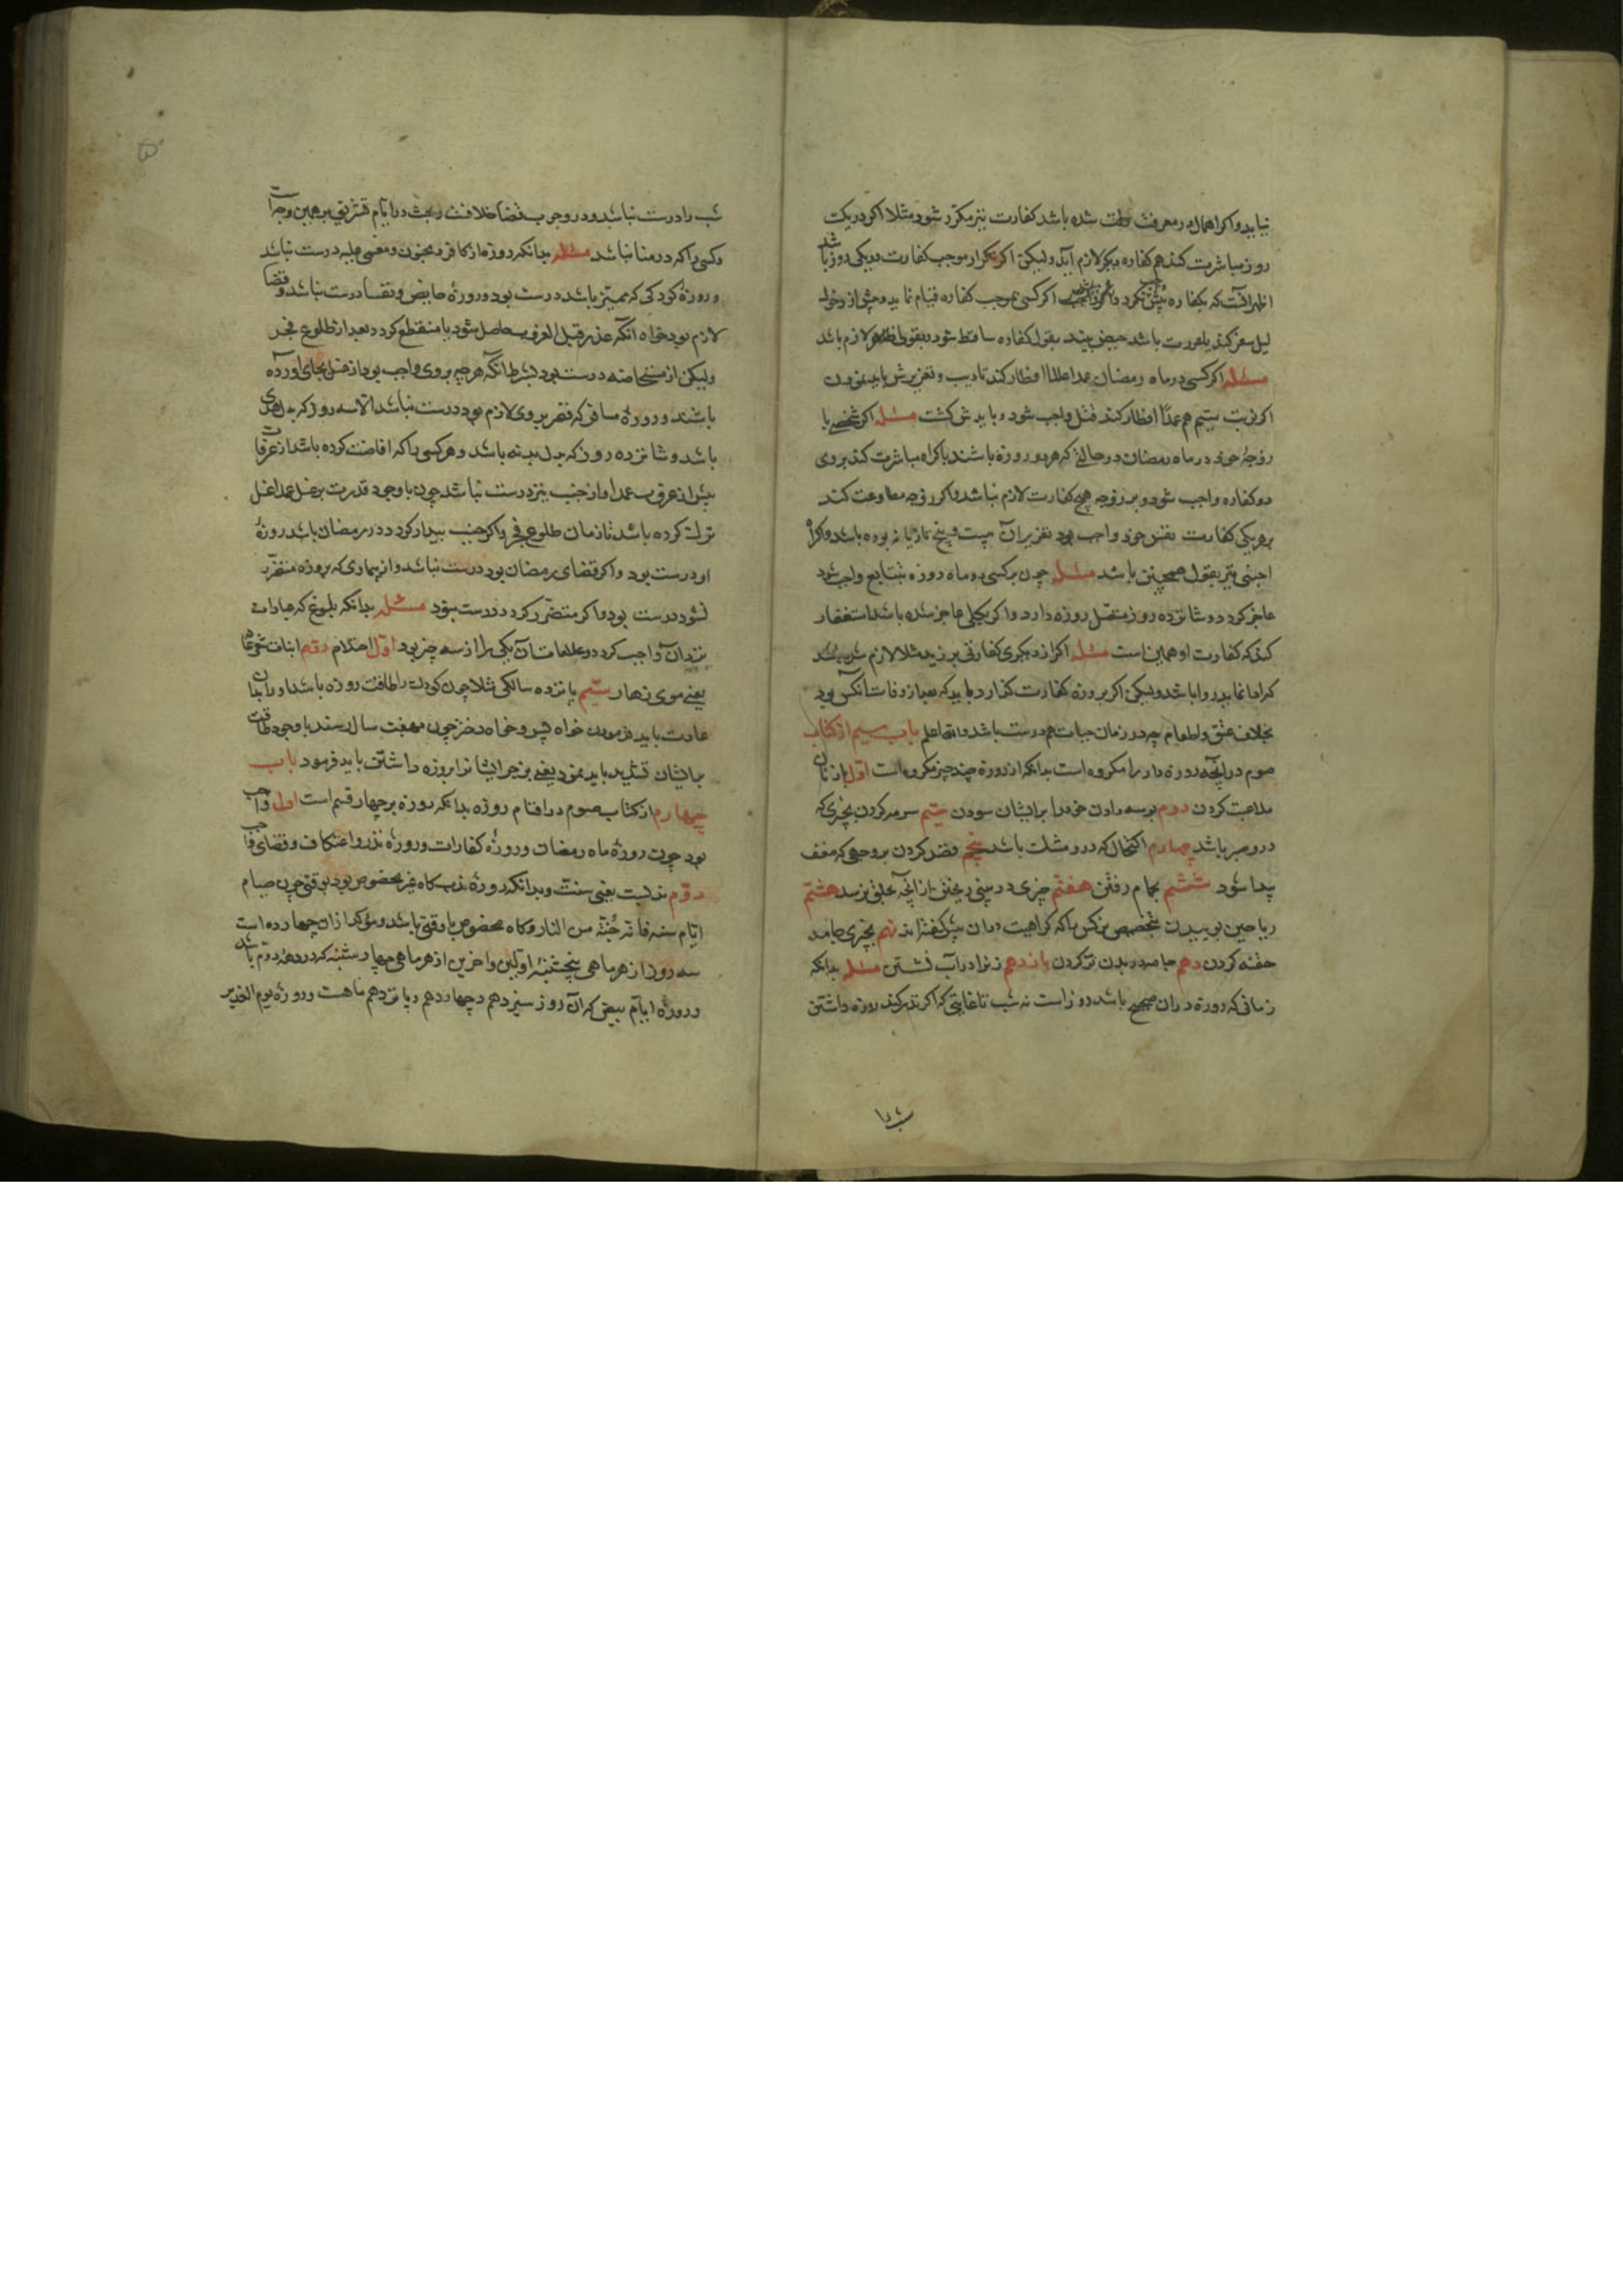 نیاید و اگر اهمال در معرفت وقت شده باشد کفارت نیز مکرر شود مثلا اگر در یک
روز مباشرت کند هم کفاره دیگر لازم آید ولیکن اگر تکرار موجب کفارت در یکی روز باشد
اظهر آنست که کفاره بیش نکردد اگر کسی بموجب کفاره قیام نماید و پیش از دخول
لیل سفر کند یا عورت باشد حیض بیند بقول کفاره ساقط شود و بقولی اظهر لازم باشد
مسئله اگر کسی در ماه رمضان عمدا افطار کند تادیب و تعزیرش باید نمودن
اگر نوبت سیم هم عمداً افطار کند قتل واجب شود و بایدش کشت مسئله اگر شخصی با
زوجهٔ خود در ماه رمضان در حالتی که هر دو روزه باشند باکراه مباشرت کند بر وی
دو کفاره واجب شود و بر زوجه هیچ کفارت لازم نباشد و اگر زوجه مطاوعت کند
بر هر یکی کفارت نفس خود واجب بود تعزیر آن بیست و پنج تازیانه بوده باشد و اکراه
اجنبی نیز بقول صحیح چنین باشد مسئله چون بر کسی دو ماه روزه متتابع واجب شود
عاجز کردد و شانزده روز متصل روزه دارد و اگر بکلی عاجز شده باشد استغفار
کند که کفارت او همین است مسئله اگر از دیگری کفارتی بر زید مثلا لازم شده باشد
که ادا نماید روا باشد ولیکن اگر بروزه کفارت کذارد باید که بعد از وفات آنکس بود
بخلاف عتق و اطعام چه در زمان حیات هم درست باشد والله اعلم باب سیم از کتاب
صوم در آنچه روزه دار را مکروه است بدانکه از روزه چند چیز مکروه است اول با زنان
ملاعبت کردن دوم بوسه دادن خود را بر ایشان سودن سیم سرمه کردن بچیزی که
در و صبر باشد چهارم اکتحال که در و مشک باشد پنجم فصد کردن بر وجهی که ضعف
پیدا شود ششم بحمام رفتن هفتم چیزی در بینی ریختن از آنچه بحلق نرسد هشتم
ریاحین بوییدن بتخصیص نرکس را که کراهیت در آن بیش گفته اند نهم بچیزی جامد
حقنه کردن دهم جامه در بدن تر کردن یازدهم زنرا در آب نشستن مسئله بدانکه
زمانی که روزه در آن صحیح باشد روز است نه شب تا غایتی که اگر نذر کند روزه داشتن
شب را
شب را درست نباشد و در وجوب قضا خلافست و بحث در ایام تشریق بر همین وجه است
و کسی را که در منا نباشد مسئله بدانکه روزه از کافر و مجنون و مغمی علیه درست نباشد
و روزهٔ کودکی که ممیز باشد درست بود و روزهٔ حایض و نفسا درست نباشد و قضا
لازم بود خواه آنکه عذر قبل الغروب حاصل شود یا منقطع کردد بعد از طلوع فجر
ولیکن از مستحاضه درست بود بشرط آنکه هر چه بر وی واجب بود از غسل بجای آورده
باشند و روزهٔ مسافر که قصر بر وی لازم بود درست نباشد الا سه روز که بدل هدی
باشد و شانزده روز که بدل بدنه باشد و هر کسی را که افاضت کرده باشد از عرفات
پیش از غروب عمدا و از جنب نیز درست نباشد چون با وجود قدرت بر غسل عمدا غسل
ترک کرده باشد تا زمان طلوع فجر و اگر جنب بیدار کردد در رمضان باشد روزهٔ
او درست بود و اگر قضای رمضان بود درست نباشد و از بیماری که بروزه متضرر
نشود درست بود و اگر متضرر کردد درست نبود مسئله بدانکه بلوغ که عبادات
نزد آن واجب کردد علامات آن یکی را از سه چیز بود اول احتلام دوم انبات شعر عانه
یعنی موی زهار سیم پانزده سالگی مثلا چون کودک را طاقت روزه باشد او را بدان
عادت باید فرمودن خواه پسر و خواه دختر چون بهفت سال رسند با وجود طاقت
بر ایشان تشدید باید نمود یعنی بزجر ایشانرا بروزه داشتن باید فرمود باب
چهارم از کتاب صوم در اقسام روزه بدانکه روزه بر چهار قسم است اول واجب
بود چون روزهٔ ماه رمضان و روزهٔ کفارات و روزهٔ نذر و اعتکاف و قضای واجب
دوم ندبست یعنی سنت و بدانکه روزهٔ ندب گاه غیر مخصوص بود بوقتی چون صیام
ایام سنه فانه جُنّة من النار و گاه مخصوص با وقتی باشد و مؤکد از آن چهارده است
سه روز از هر ماهی پنجشنبه اولین و آخرین از هر ماهی چهارشنبه که در دهه دوم باشد
و روزهٔ ایام بیض که آن روز سیزدهم و چهاردهم و پانزدهم ماهست و روزهٔ یوم الغدیر